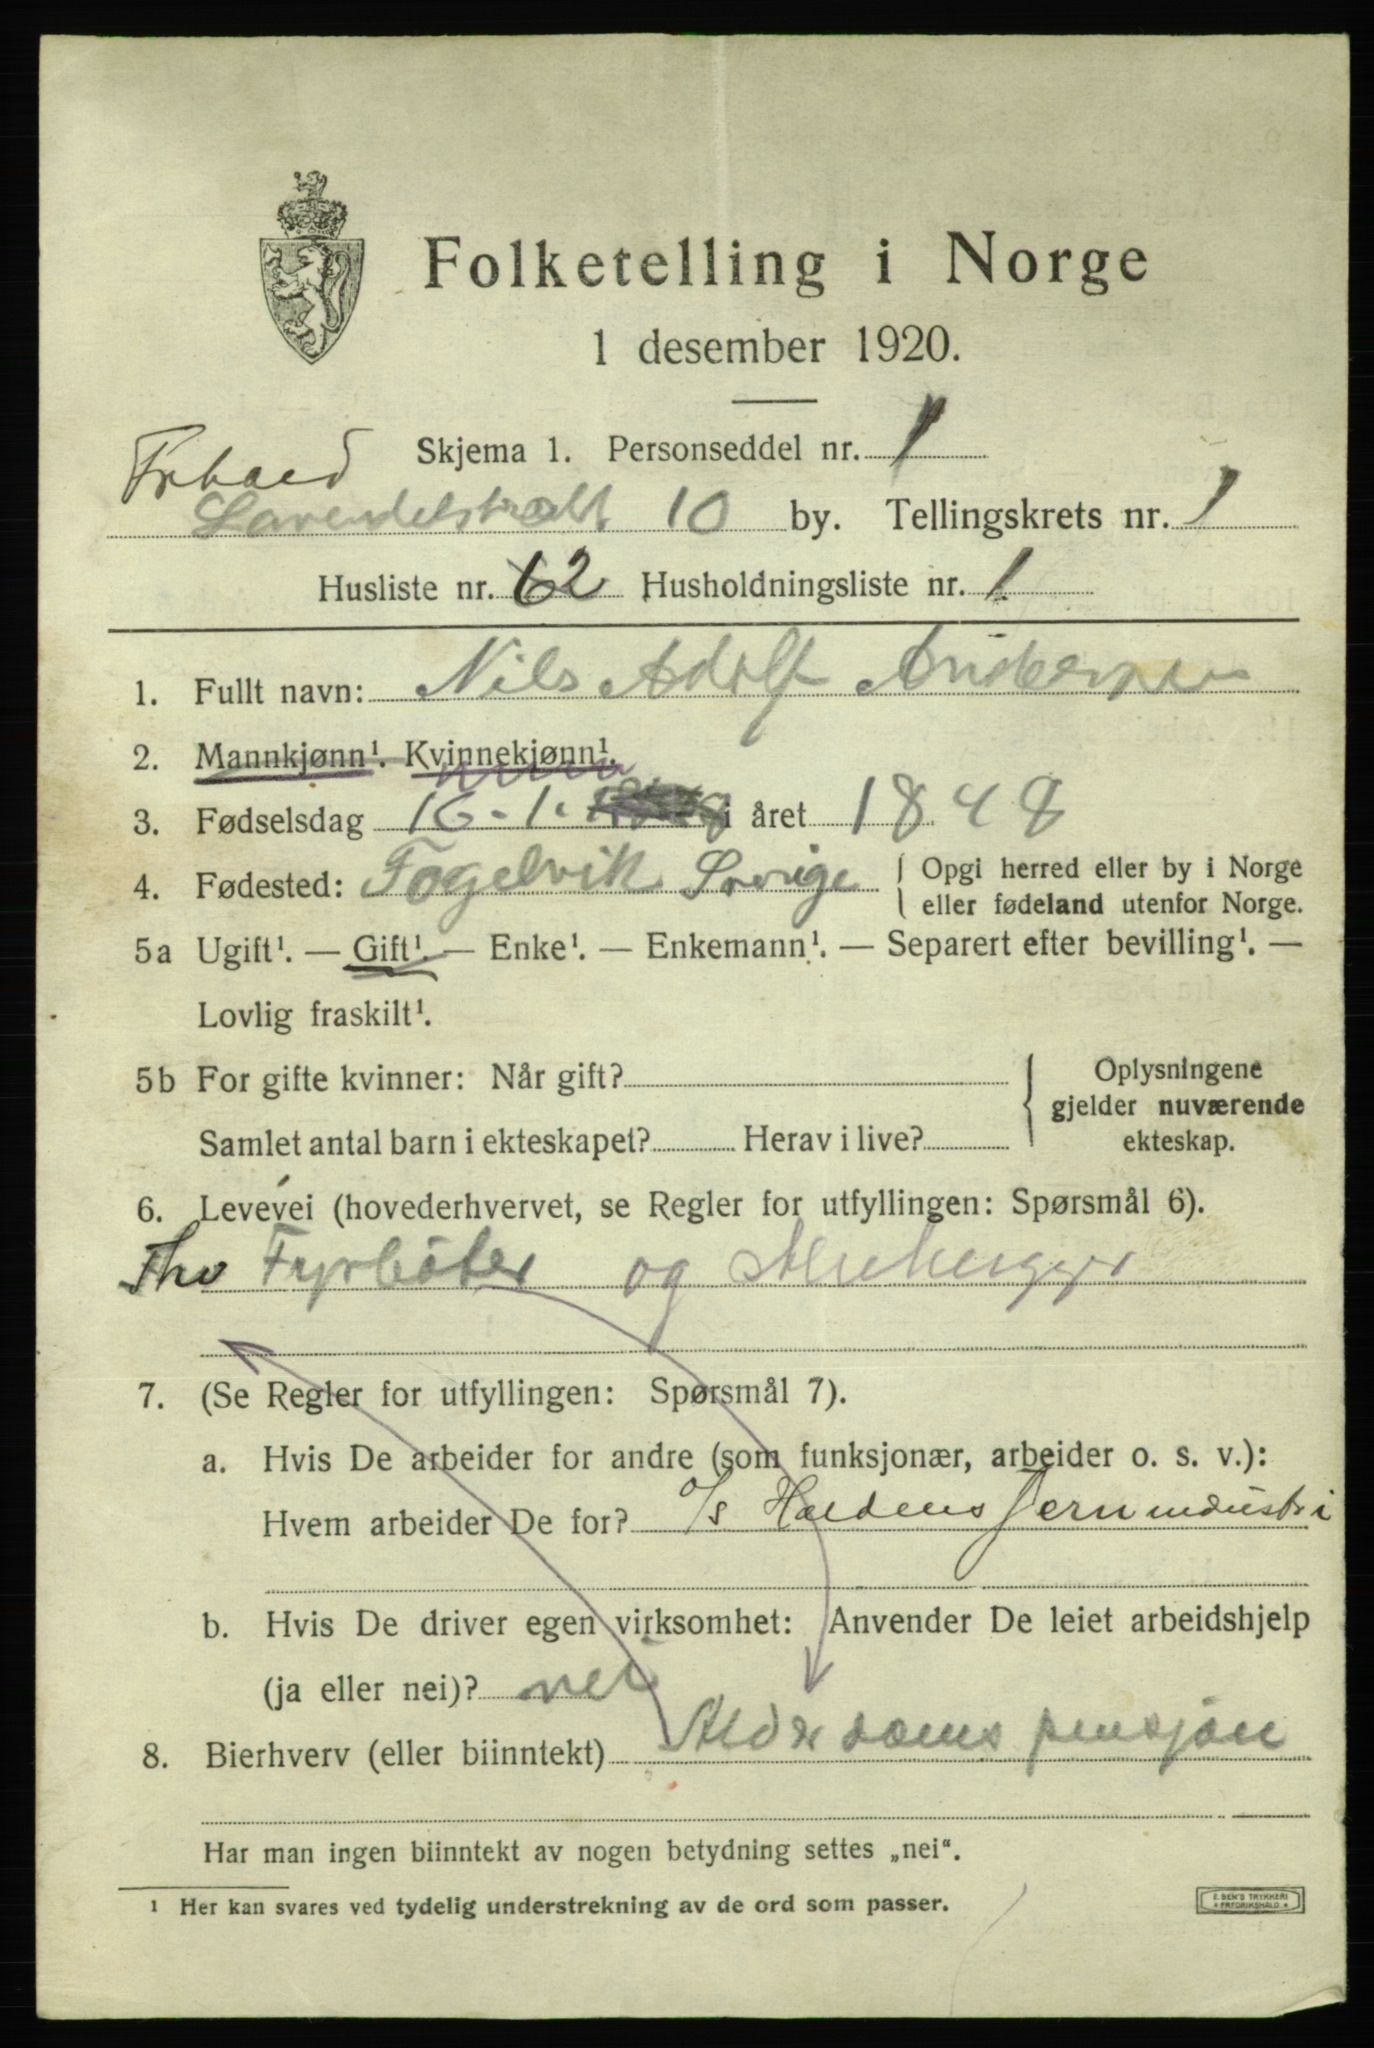 Folketelling i Norge
1 desember 1920.
Skjema 1. Personseddel nr. 1
Frhald
10 by. Tellingskrets nr. 1
Husliste nr. 62 Husholdningsliste nr. 1
1. Fullt navn: Nils Adolf Andersen
2. Mannkjønn¹. Kvinnekjønn¹.
3. Fødselsdag 16-1. i året 1848
4. Fødested: Fogelvik Sverige { Opgi herred eller by i Norge
eller fødeland utenfor Norge.
5a Ugift¹. — Gift¹. — Enke¹. — Enkemann¹. — Separert efter bevilling¹. —
Lovlig fraskilt¹.
5b For gifte kvinner: Når gift? Oplysningene
gjelder nuværende
Samlet antal barn i ekteskapet? Herav i live? ekteskap.
6. Levevei (hovederhvervet, se Regler for utfyllingen: Spørsmål 6).
Fyrböter og
7. (Se Regler for utfyllingen: Spørsmål 7).
a. Hvis De arbeider for andre (som funksjonær, arbeider o. s. v.):
Hvem arbeider De for? A/s Haldens Jernindustri
b. Hvis De driver egen virksomhet: Anvender De leiet arbeidshjelp
(ja eller nei)? nei
8. Bierhverv (eller biinntekt) Alderdoms pensjon
Har man ingen biinntekt av nogen betydning settes „nei“.
¹ Her kan svares ved tydelig understrekning av de ord som passer.
E. SEM'S TRYKKERI
FREDRIKSHALD